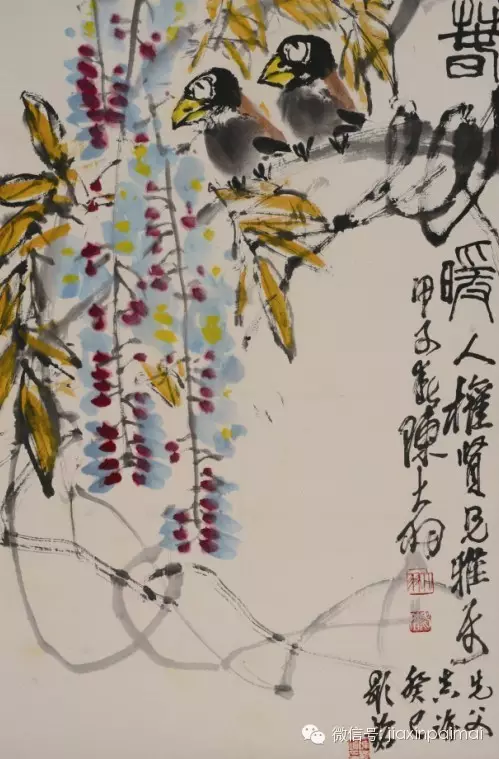 春暖
人權賢兄雅正
甲子春陳大羽
先父
真跡
癸巳
微信号: jiaxinpaimai